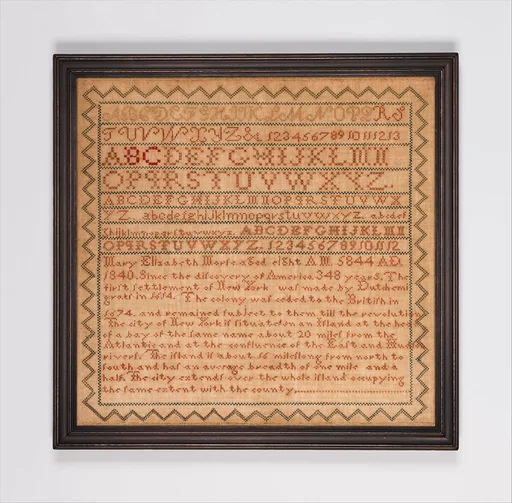 ABCDEFGHIJKLMNOPQRS
TUVWXYZ& 12345678910111213
ABCDEFGHIJKLMN
OPQRSTUVWXYZ
ABCDEFGHIJKLMNOPQRSTUVWX
YZ abcdefghijklmnopqrstuvwxyz abcdef
ghijklmnopqrstuvwxyz ABCDEFGHIJKLMN
OPQRSTUVWXYZ. 123456789101112
Mary Elizabeth A.M 5844 A.D.
1840. Since the discovery of America 348 years. The
first settlement of New York was made by Dutch emi
grats in 1614. The colony was ceded to the British in
1674. and remained subject to them till the revolution
The city of New York is situated on an Island at the head
of a bay of the same name about 20 miles from the
Atlantic and at the confluence of the East and Hudson
rivers. The island is about 16 miles long from north to
south and has an average breadth of one mile and a
half. The city extends over the whole island occupying
the same extent with the county.